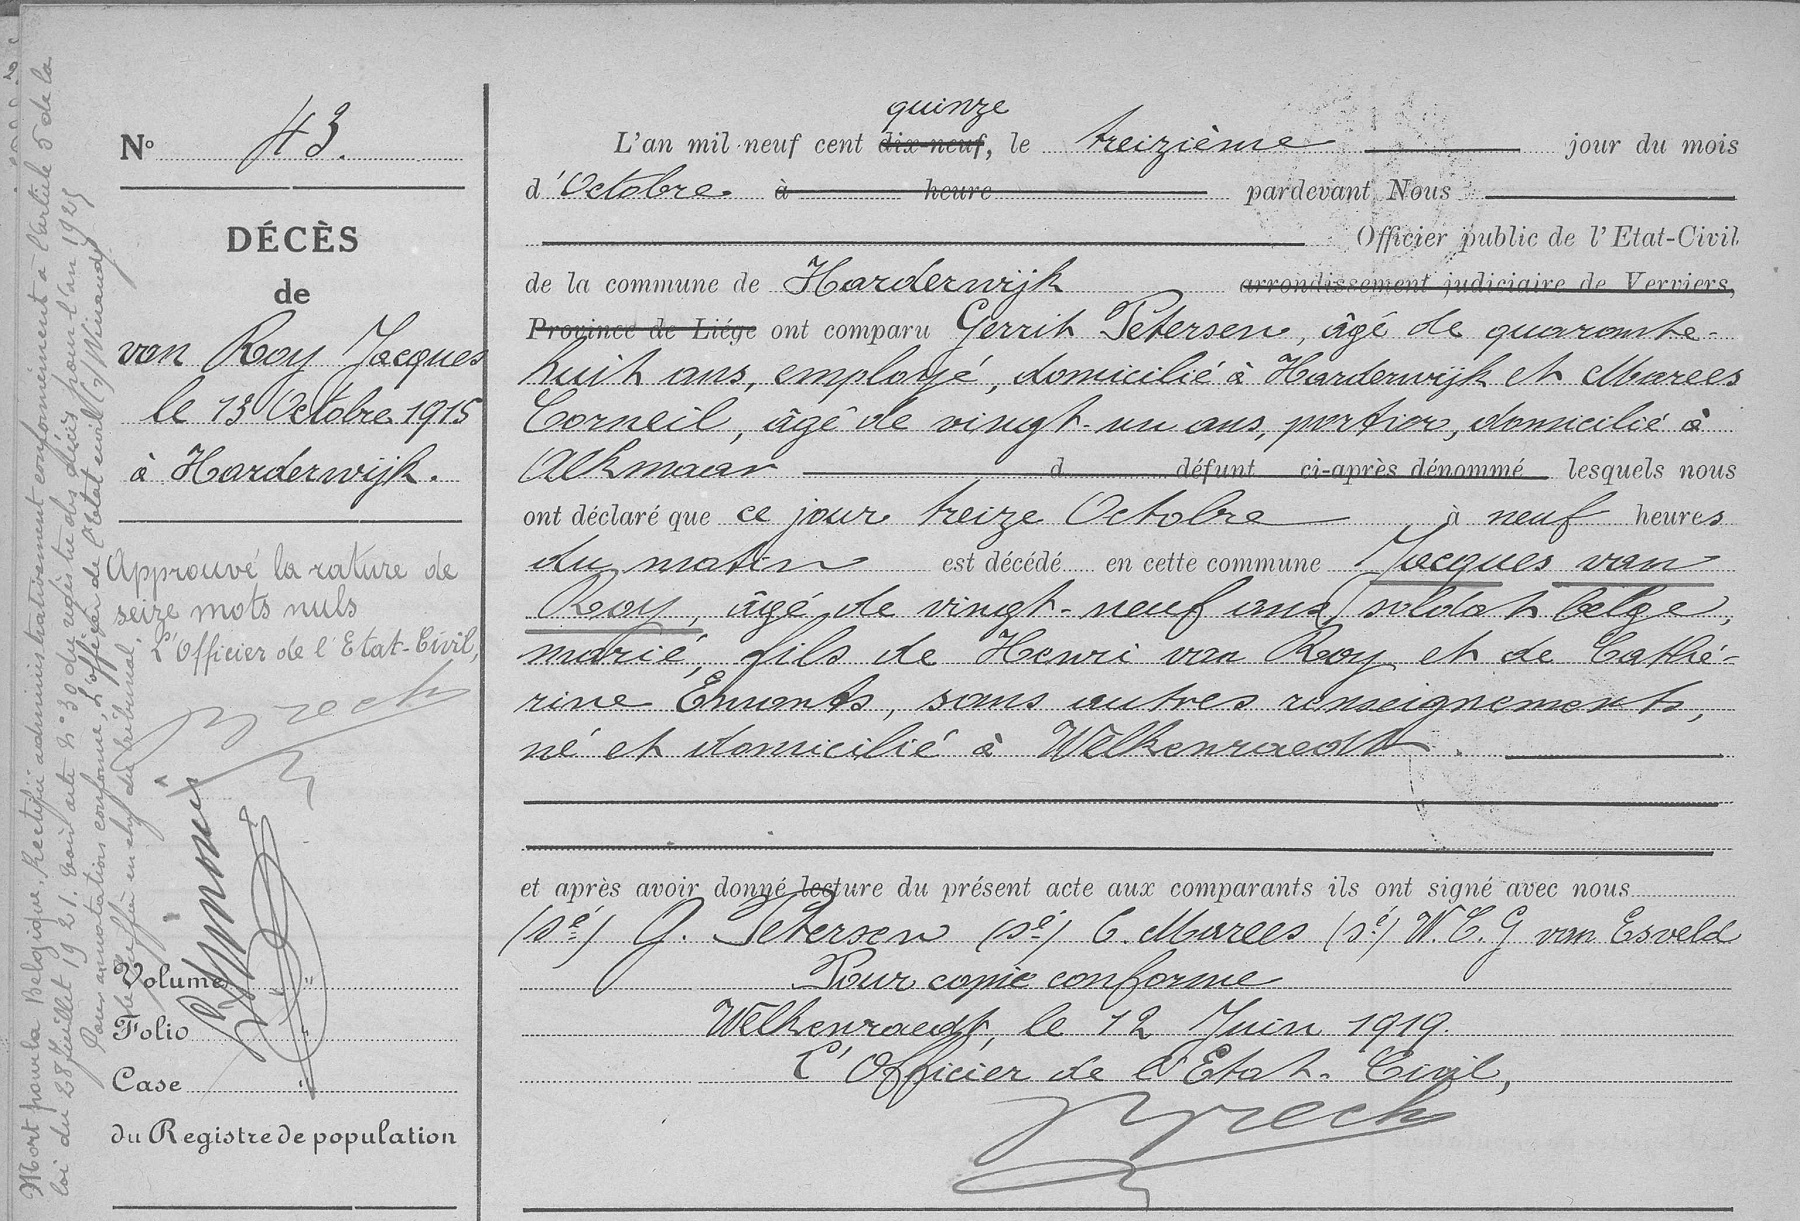 Nº 43.
DÉCÈS
de
van Roy Jacques
le 13 Octobre 1915
à Harderwijk.
Approuvé la rature de
seize mots nuls
L'Officier de l'Etat-Civil,
Volume "
Folio "
Case "
du Registre de population
Mort pour la Belgique, Rectifié administrativement conformément à l'article 5 de la
loi du 28 Juillet 1921. Voir acte Nº 30 du registre des décès pour l'an 1925
Pour annotation conforme, L'officier de l'Etat civil (s/) Winandy
Le greffier en chef du tribunal,
quinze
L'an mil neuf cent dix-neuf, le treizième jour du mois
d'Octobre à heure pardevant Nous
Officier public de l'Etat-Civil
de la commune de Harderwijk arrondissement judiciaire de Verviers,
Province de Liége ont comparu Gerrit Petersen, âgé de quarante-
huit ans, employé, domicilié à Harderwijk et Marees
Corneil, âgé de vingt-un ans, portier, domicilié à
Alkmaar d défunt ci-après dénommé lesquels nous
ont déclaré que ce jour treize Octobre à neuf heures
du matin est décédé en cette commune Jacques van
Roy, âgé de vingt-neuf ans, soldat belge,
marié, fils de Henri van Roy et de Cathé-
rine Emonts, sans autres renseignements,
né et domicilié à Welkenraedt.
et après avoir donné lecture du présent acte aux comparants ils ont signé avec nous
(sé) G. Petersen (sé) C. Marees (sé) W. C. G van Esveld
Pour copie conforme
Welkenraedt, le 12 Juin 1919.
L'Officier de l'Etat-Civil,